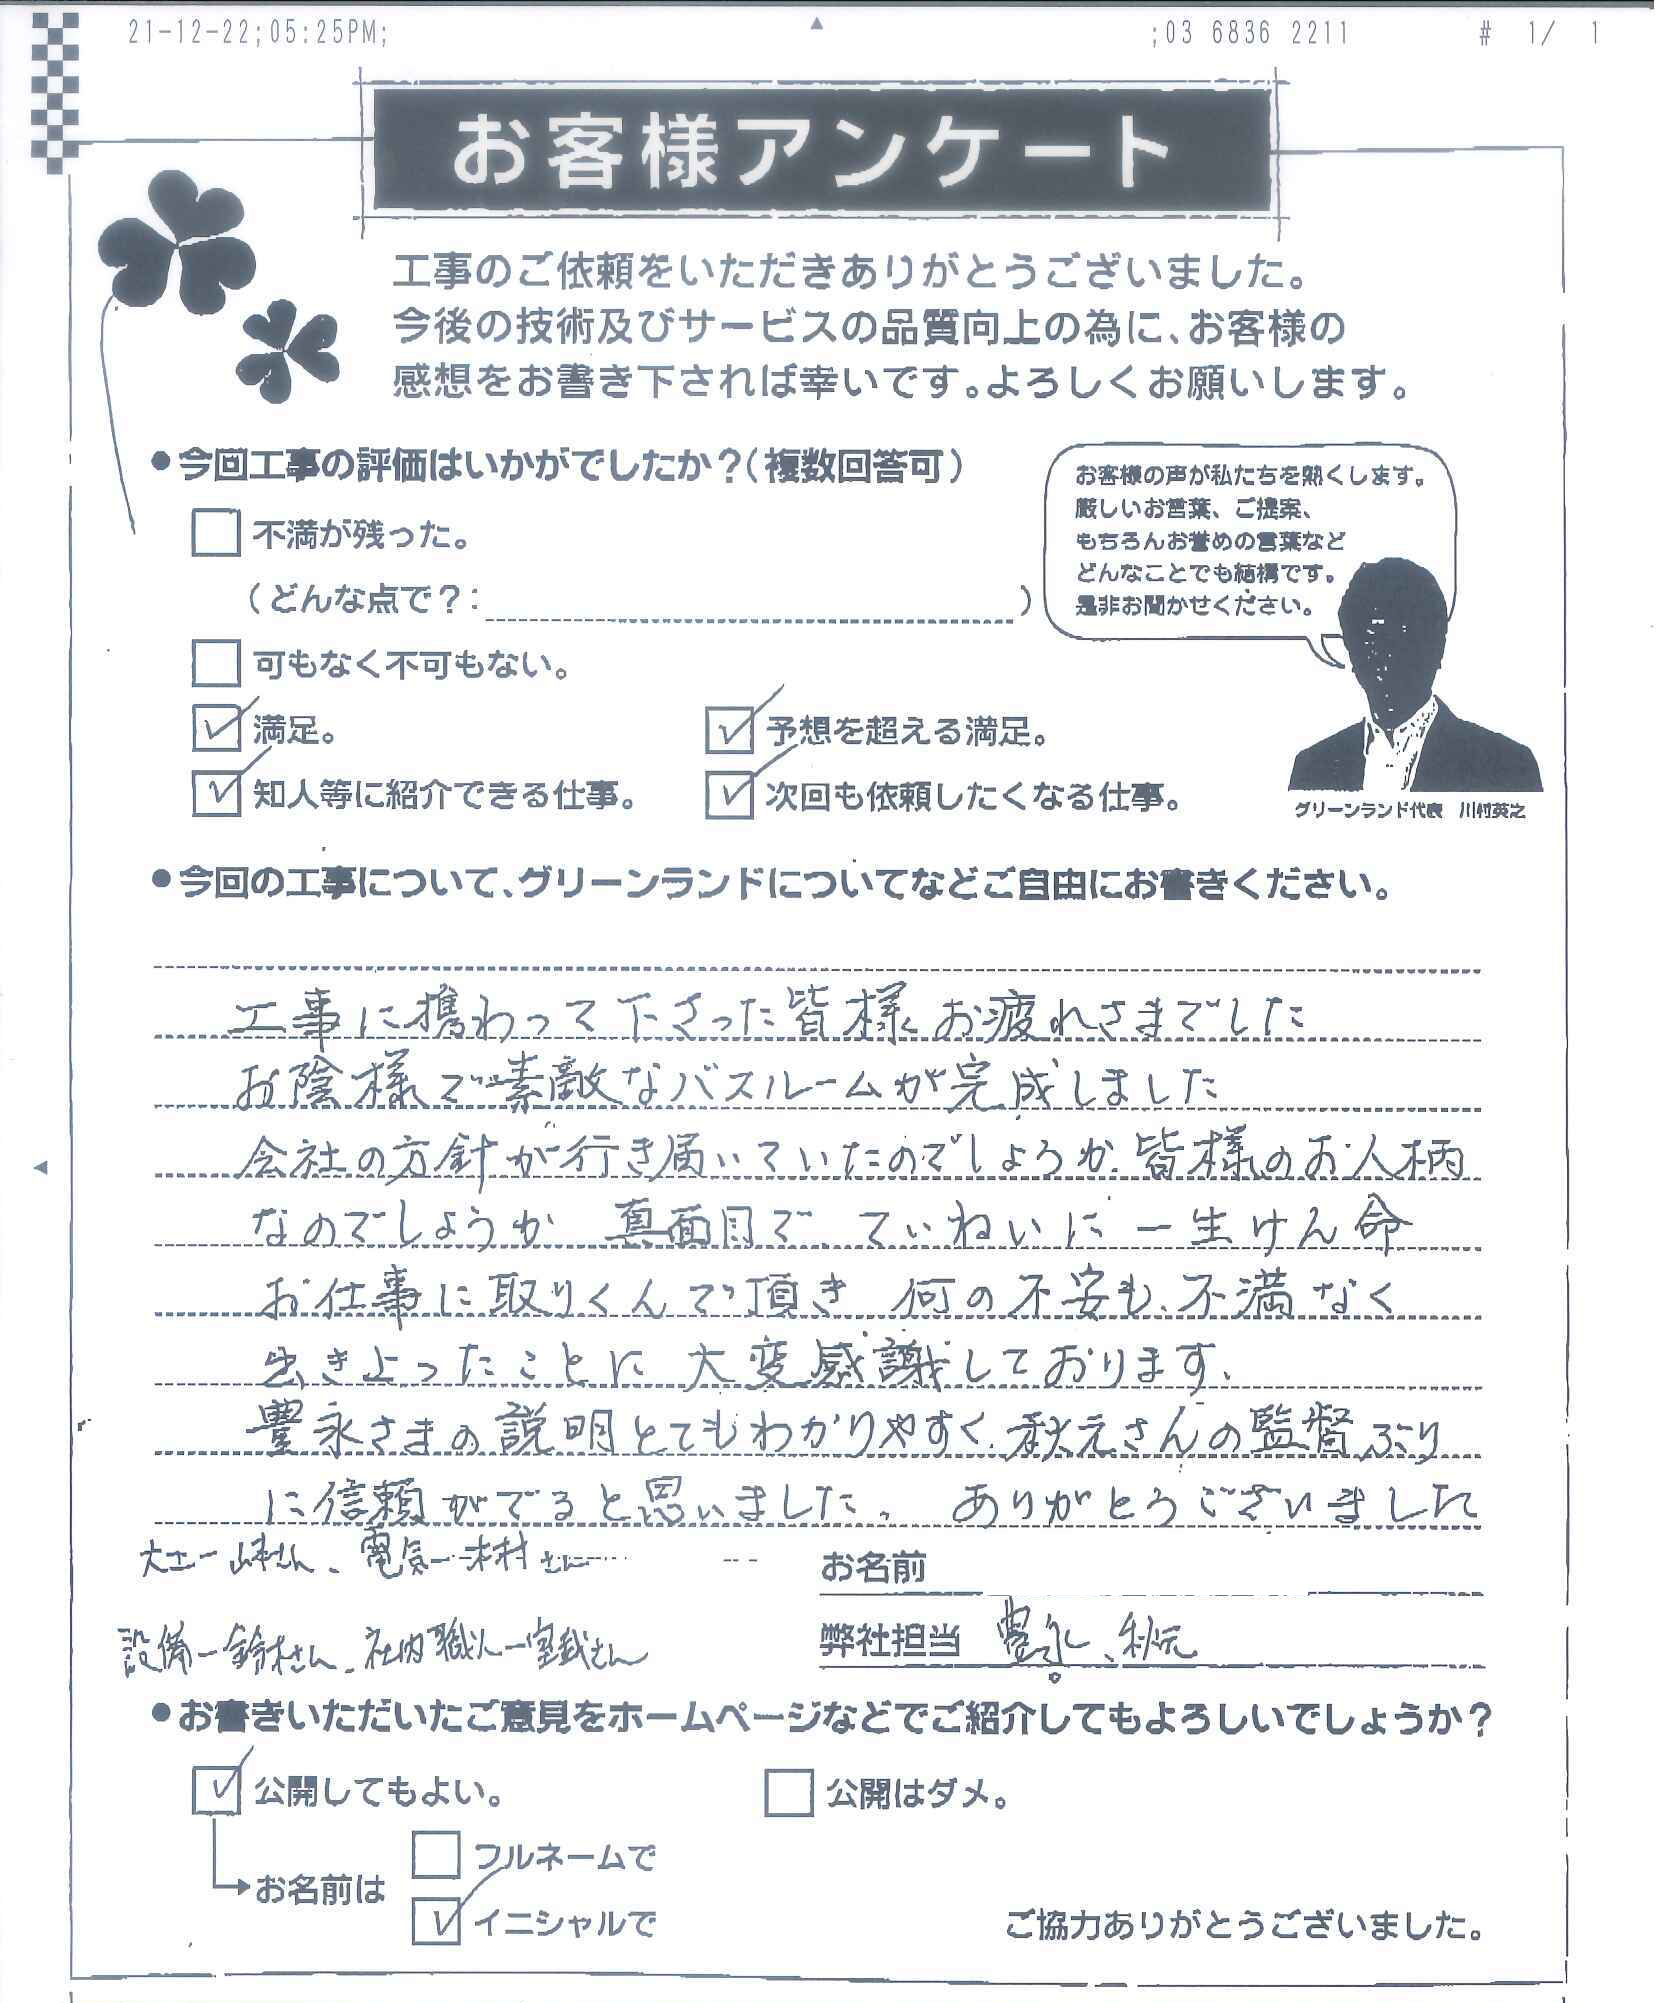 21-12-22;05:25PM; ;03 6836 2211 # 1/ 1
お客様アンケート
工事のご依頼をいただきありがとうございました。
今後の技術及びサービスの品質向上の為に、お客様の
感想をお書き下されば幸いです。よろしくお願いします。
●今回工事の評価はいかがでしたか？（複数回答可）
不満が残った。
（どんな点で？： ）
可もなく不可もない。
満足。
予想を超える満足。
知人等に紹介できる仕事。
次回も依頼したくなる仕事。
お客様の声が私たちを熱くします。
厳しいお言葉、ご提案、
もちろんお誉めの言葉など
どんなことでも結構です。
是非お聞かせください。
グリーンランド代表 川村英之
●今回の工事について、グリーンランドについてなどご自由にお書きください。
工事に携わって下さった皆様 お疲れさまでした
お陰様で素敵なバスルームが完成しました
会社の方針が行き届いていたのでしょうか、皆様のお人柄
なのでしょうか 真面目で、ていねいに一生けん命
お仕事に取りくんで頂き 何の不安も、不満なく
出き上ったことに 大変感謝しております、
豊永さまの説明とてもわかりやすく、秋元さんの監督ぶり
に信頼ができると思いました。 ありがとうございました
大工ー山本さん、電気ー木村さん
お名前
設備ー鈴木さん、社内職人ー室我さん
弊社担当 豊永、秋元
●お書きいただいたご意見をホームページなどでご紹介してもよろしいでしょうか？
公開してもよい。
公開はダメ。
お名前は
フルネームで
イニシャルで
ご協力ありがとうございました。